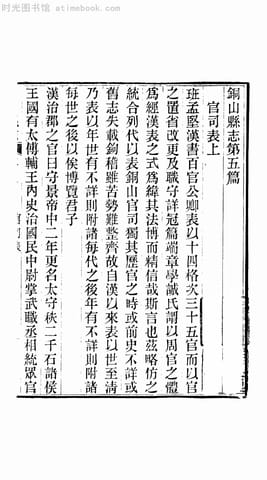 时光图书馆 - www.atimebook.com
銅山縣志第五篇
官司表上
班孟堅漢書百官公卿表以十四格次三十五官而以官
之置省改更及職守詳冠篇端章學誠氏謂以周官之體
為經漢表之式為緯其法博而精信哉斯言也茲略仿之
統合列代以表銅山官司獨其歷官之時或前史不詳或
舊志失載鉤稽雖苦勢難整齊故自漢以來表以世至清
乃表以年世有不詳則附諸每代之後年有不詳則附諸
每世之後以俟博覽君子
漢治郡之官曰守景帝中二年更名太守秩二千石諸侯
王國有太傅輔王內史治國民中尉掌武職丞相統眾官